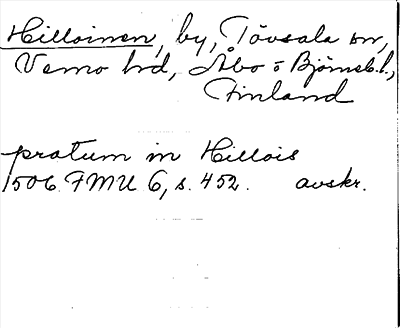 Hilloinen, by, Tövsala sn,
Vemo hrd, Åbo o Björneb. l.,
Finland
pratum in Hillois
1506. FMU 6, s. 452. avskr.